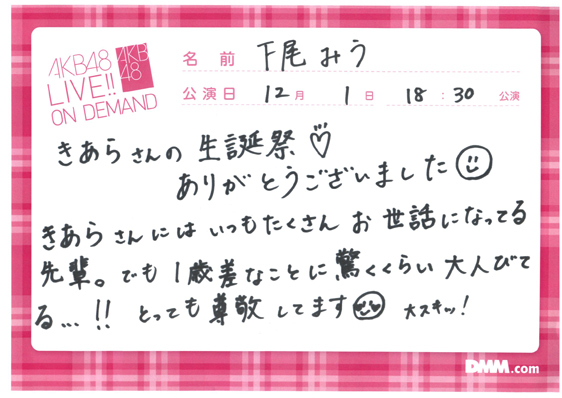 AKB48
LIVE!!
ON DEMAND
AKB
48
名前 下尾みう
公演日 12月 1日 18:30 公演
きあらさんの 生誕祭♡
ありがとうございました☺
きあらさんには いつもたくさん お世話になってる
先輩。でも 1歳差なことに 驚くくらい 大人びて
る…!! とっても 尊敬 してます☺ 大スキッ!
DMM.com